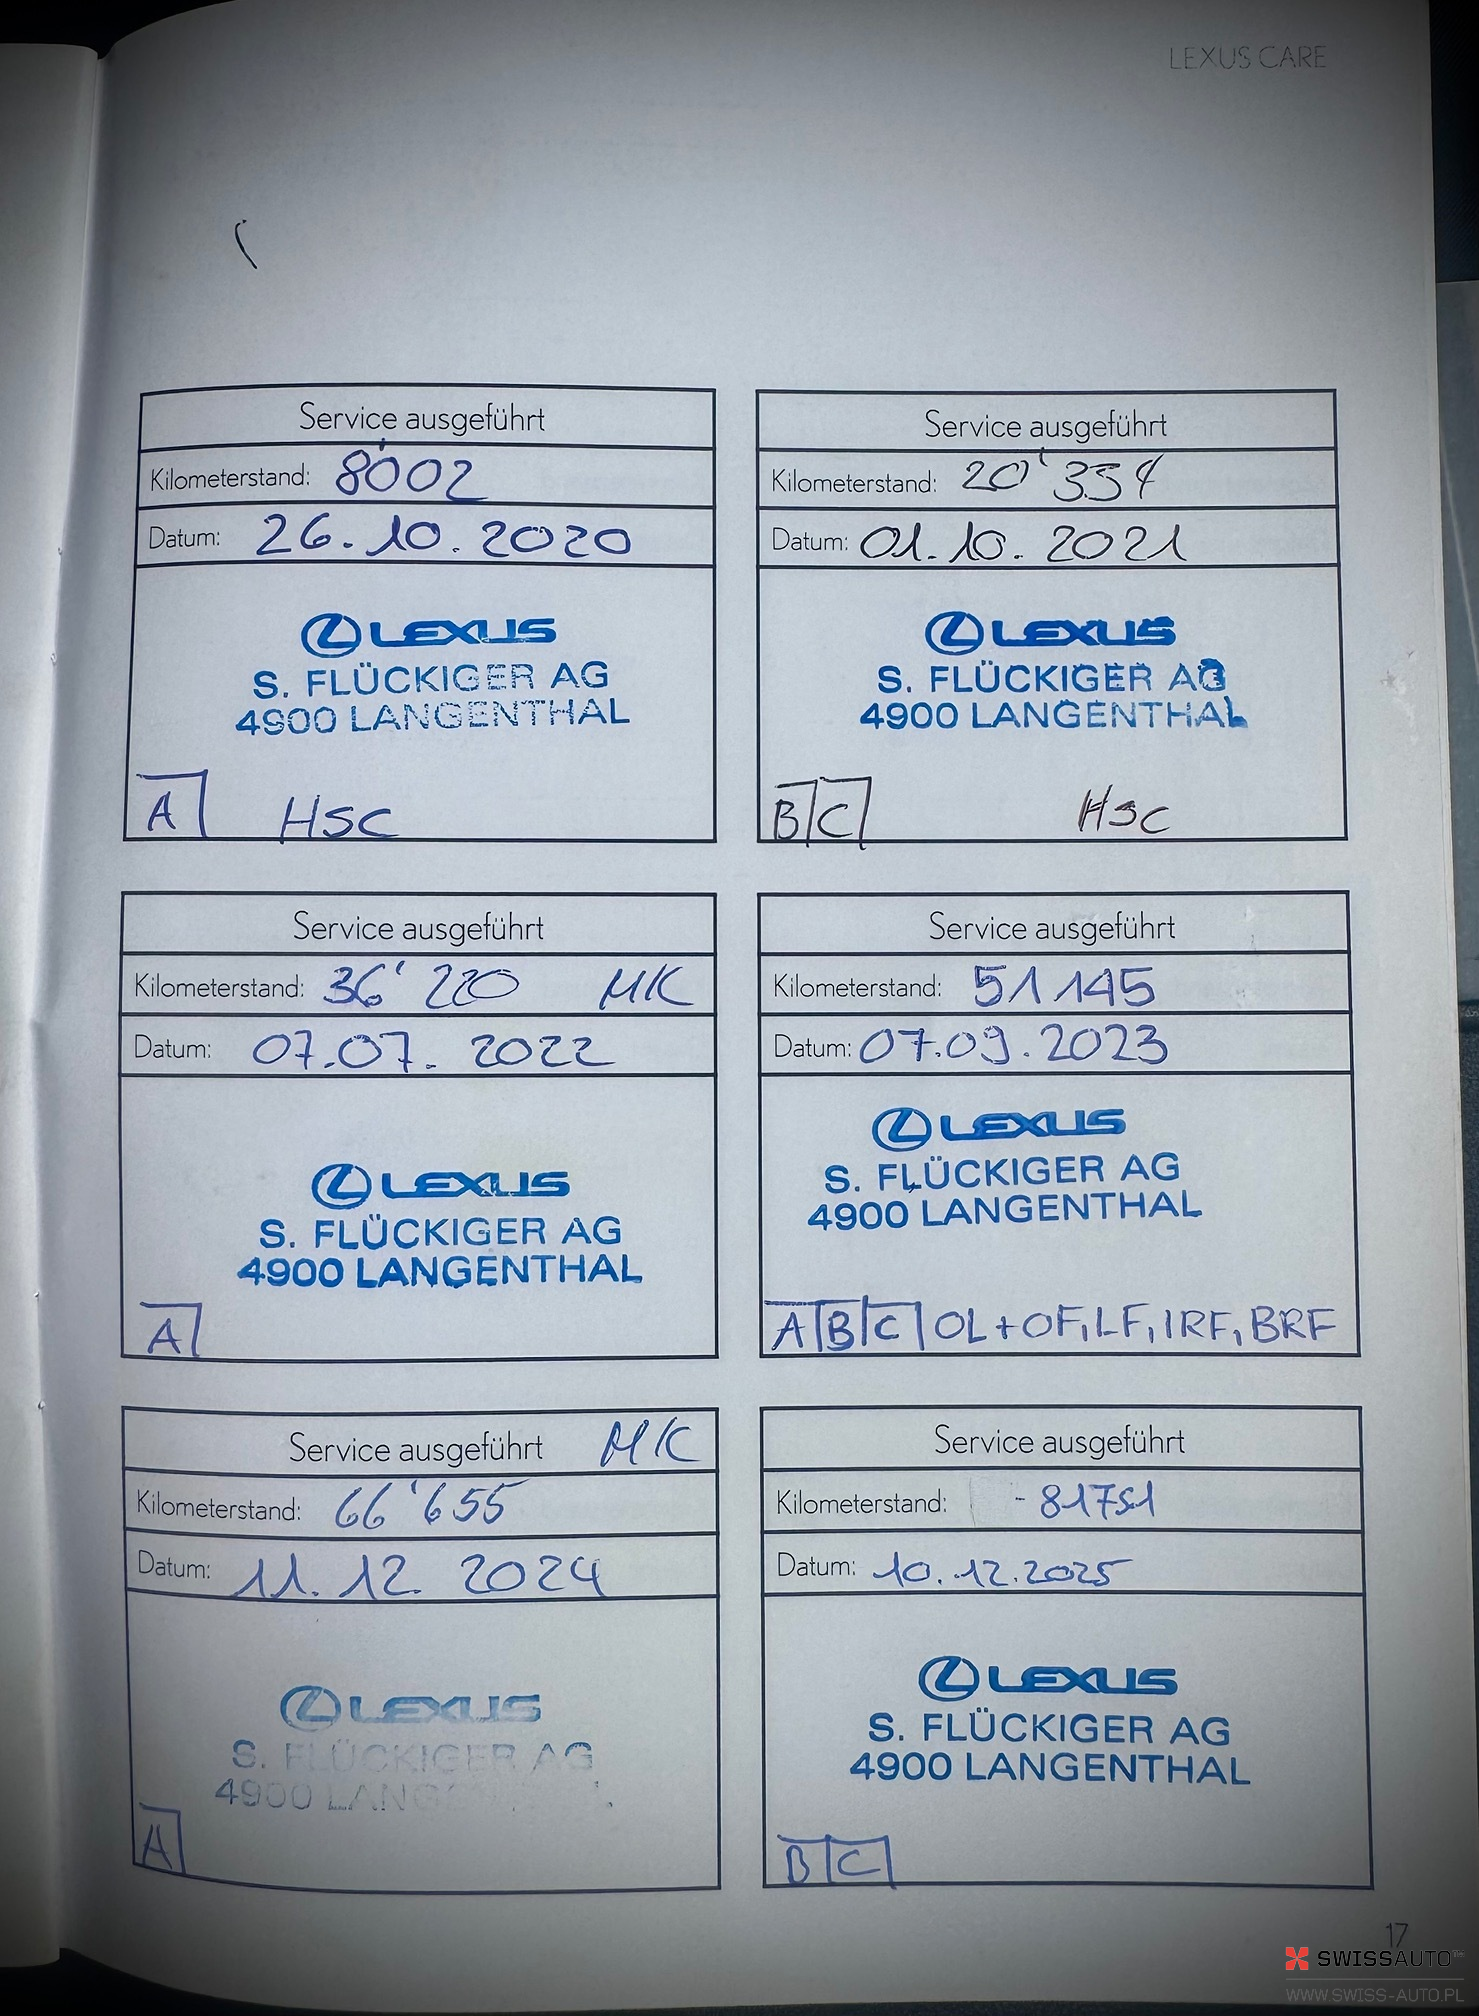 LEXUS CARE
Service ausgeführt
Kilometerstand: 8'002
Datum: 26.10.2020
LEXUS
S. FLÜCKIGER AG
4900 LANGENTHAL
A HSC
Service ausgeführt
Kilometerstand: 20'354
Datum: 01.10.2021
LEXUS
S. FLÜCKIGER AG
4900 LANGENTHAL
B C HSC
Service ausgeführt
Kilometerstand: 36'220 MK
Datum: 07.07.2022
LEXUS
S. FLÜCKIGER AG
4900 LANGENTHAL
A
Service ausgeführt
Kilometerstand: 51145
Datum: 07.09.2023
LEXUS
S. FLÜCKIGER AG
4900 LANGENTHAL
A B C OL+OF, LF, IRF, BRF
Service ausgeführt MK
Kilometerstand: 66'655
Datum: 11.12.2024
LEXUS
S. FLÜCKIGER AG
4900 LANGENTHAL
A
Service ausgeführt
Kilometerstand: -81751
Datum: 10.12.2025
LEXUS
S. FLÜCKIGER AG
4900 LANGENTHAL
B C
17
SWISSAUTO
WWW.SWISS-AUTO.PL